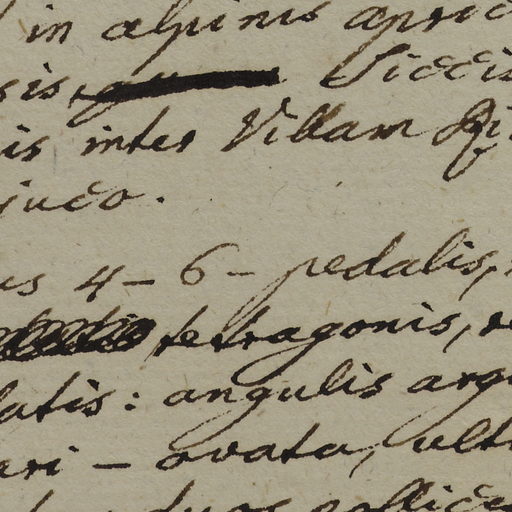 in alpinis apric
sis, siccis
is inter Villam
juco.
us 4-6-pedalis,
tetragonis, re
latis: angulis arg
eri-ovata, ult
duos pollic